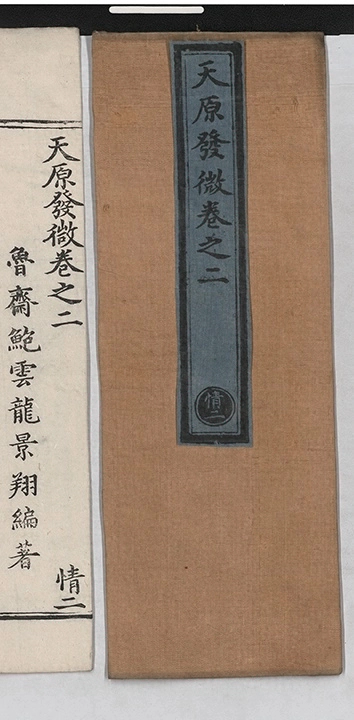 天原發微卷之二
情二
天原發微卷之二
情二
魯齋鮑雲龍景翔編著